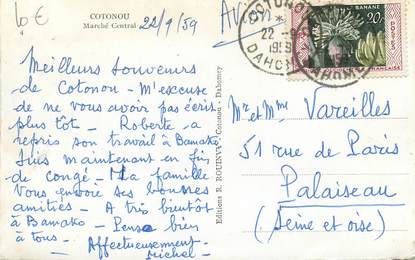 6€
COTONOU
Marché Central
22/9/59
Meilleurs souvenirs
de Cotonou - M'excuse
de ne vous avoir pas écris
plus tôt - Roberte a
repris son travail à Bamako
Suis maintenant en fin
de congé - Ma famille
Vous envoie ses bonnes
amitiés - A très bientôt
à Bamako - Pense bien
à tous -
Affectueusement -
Michel -
Editions R. ROUINVY - Cotonou - Dahomey
COTONOU
22 - 9
195
DAHOMEY
BANANE
20F
POSTES
FRANÇAISE
Mr et Mme Vareilles
51 rue de Paris
Palaiseau
(Seine et oise)